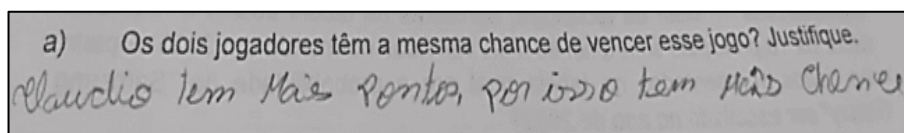 a) Os dois jogadores têm a mesma chance de vencer esse jogo? Justifique.
Claudio tem Mais Pontos, por isso tem Mais Chance